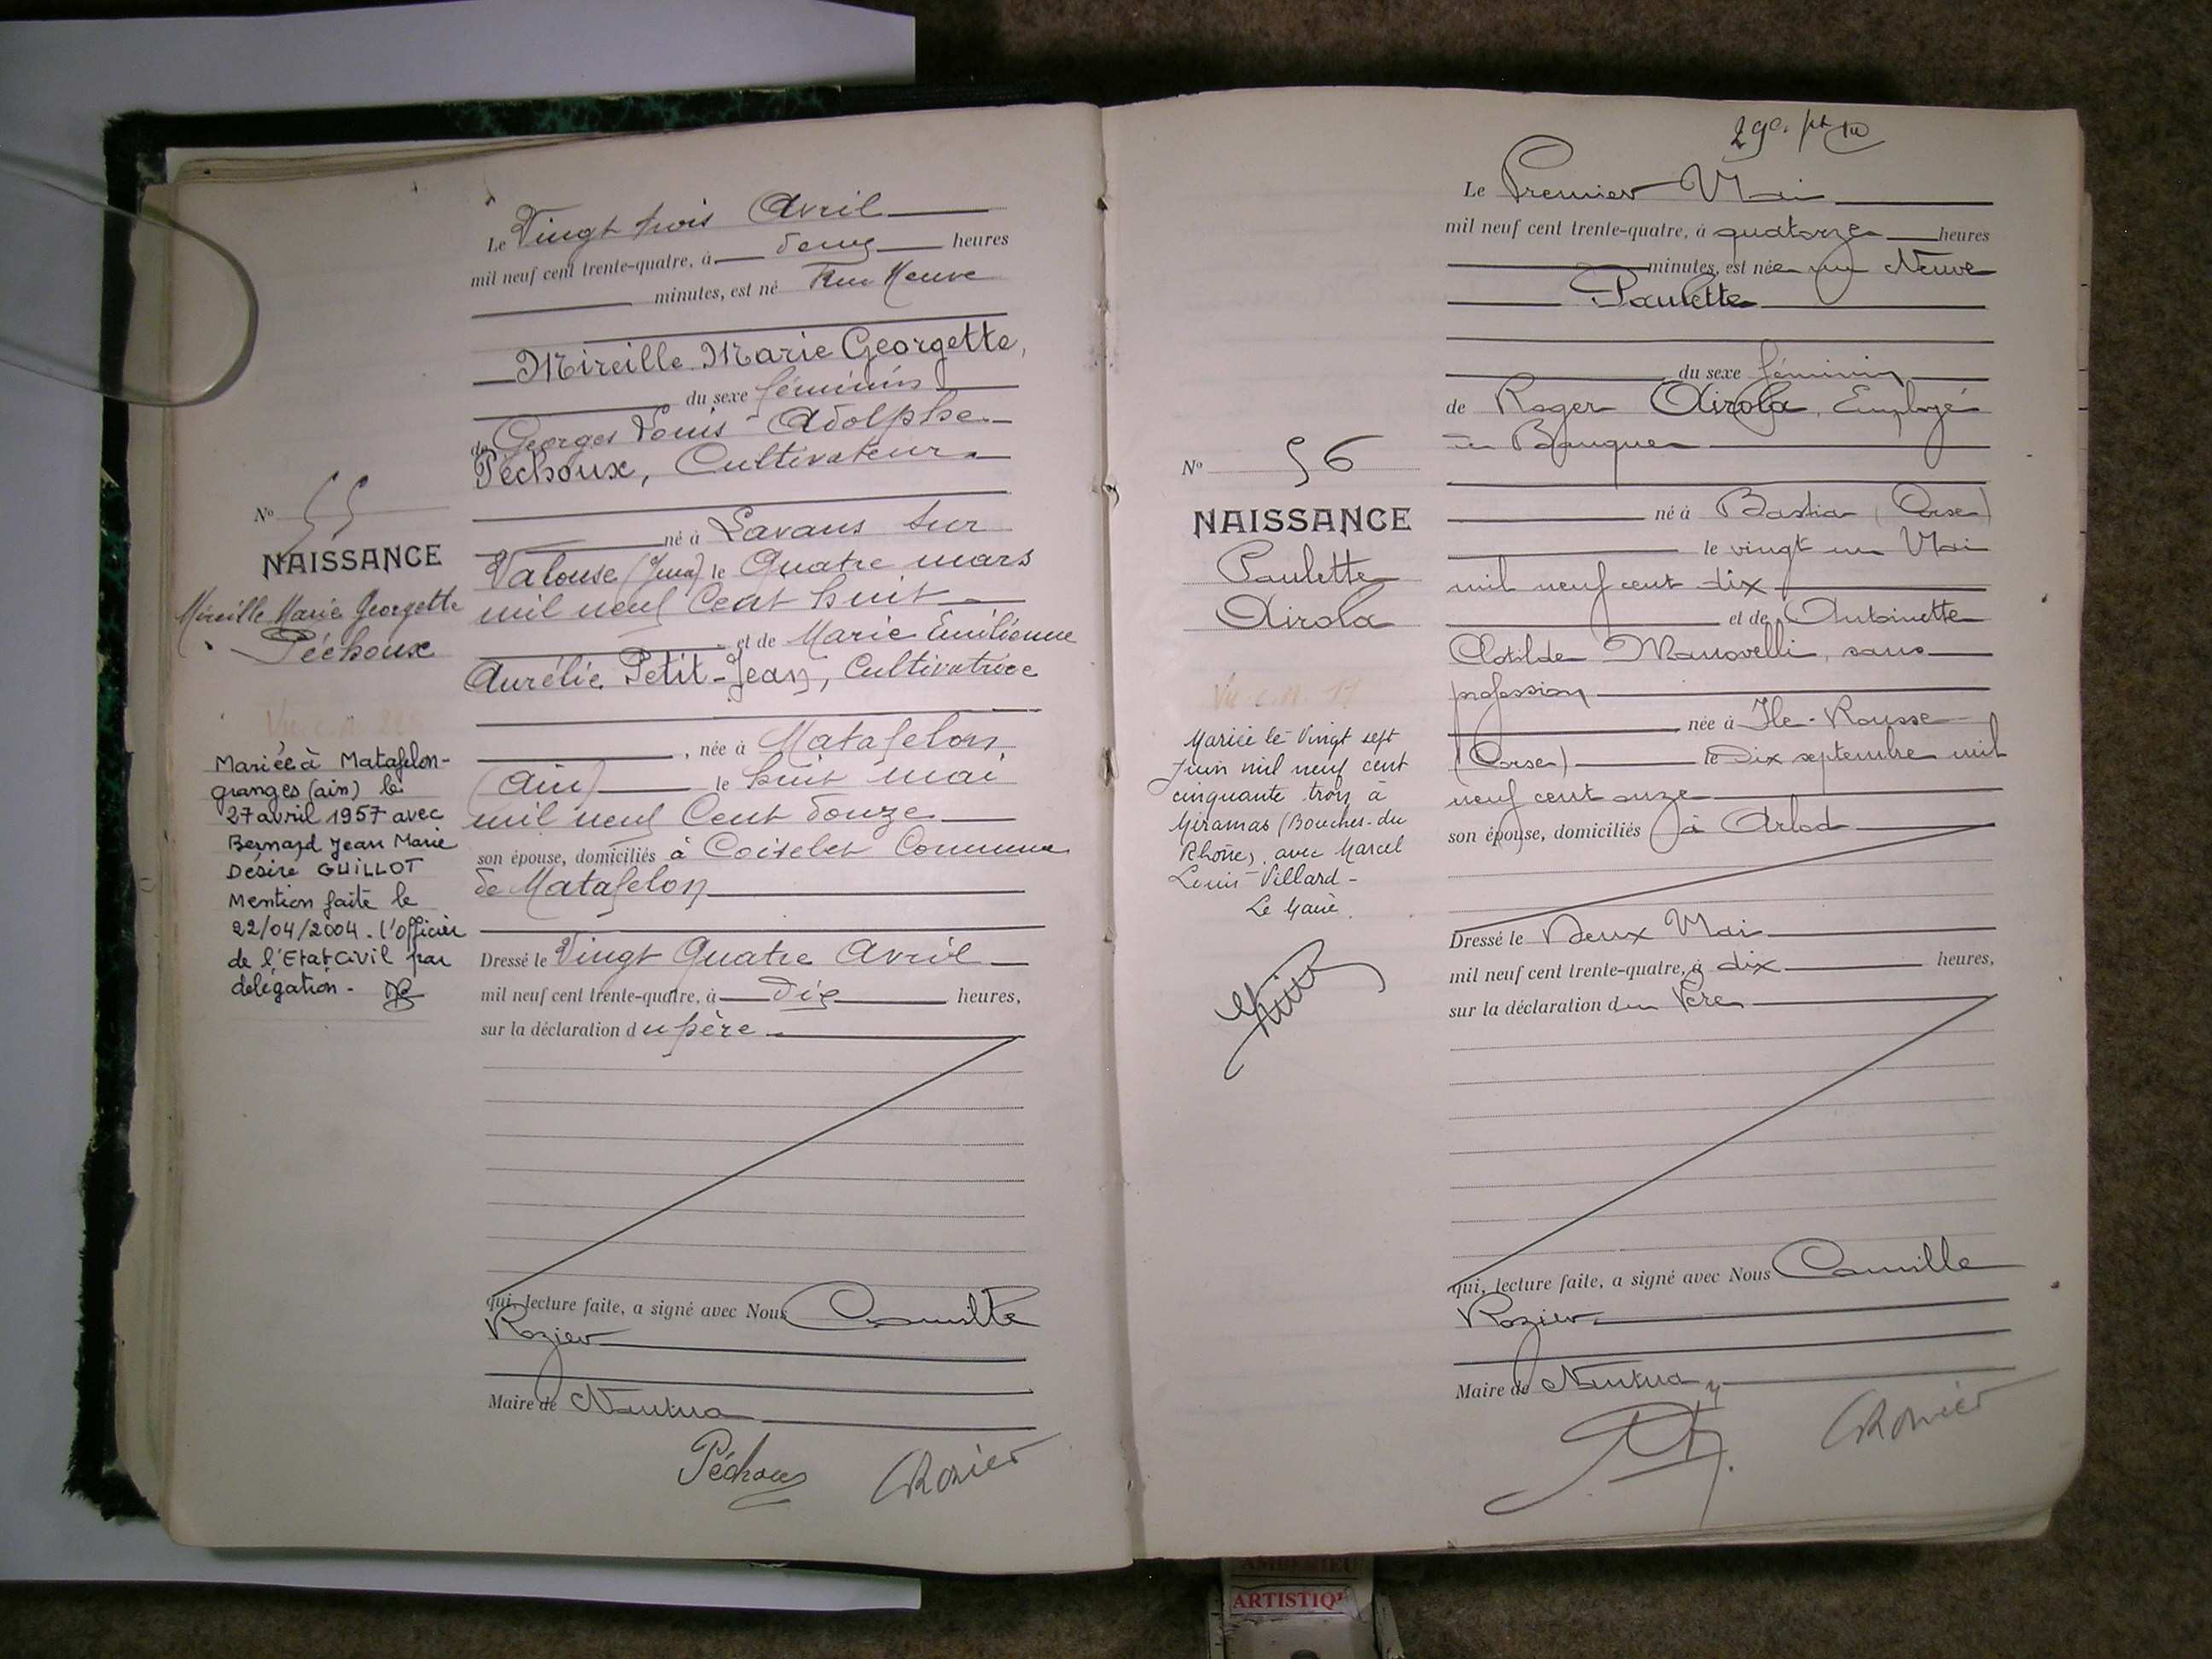 Le Vingt trois Avril
mil neuf cent trente-quatre, à deux heures
minutes, est né Rue Neuve
Mireille Marie Georgette,
du sexe féminin
de Georges Louis Adolphe
Péchoux, Cultivateur
né à Lavans sur
Valouse (Jura) le Quatre mars
mil neuf Cent huit
et de Marie Emilienne
Aurélie Petit-Jean, Cultivatrice
, née à Matafelon
(Ain) le huit mai
mil neuf Cent douze
son épouse, domiciliés à Coiselet Commune
de Matafelon
Dressé le Vingt Quatre Avril
mil neuf cent trente-quatre, à dix heures,
sur la déclaration du père
qui, lecture faite, a signé avec Nous Camille
Rozier
Maire de Nantua
Péchoux CRozier
No 55
NAISSANCE
Mireille Marie Georgette
Péchoux
Mariée à Matafelon-
granges (ain) le
27 avril 1957 avec
Bernard Jean Marie
Désiré GUILLOT
Mention faite le
22/04/2004. l'officier
de l'Etat Civil par
délégation.
Le Premier Mai
mil neuf cent trente-quatre, à quatorze heures
minutes, est née rue Neuve
Paulette
du sexe féminin
de Roger Airola, Employé
de Banque
né à Bastia (Corse)
le vingt un Mai
mil neuf cent dix
et de Antoinette
Clotilde Manovelli, sans
profession
née à Ile-Rousse
(Corse) le Dix septembre mil
neuf cent onze
son épouse, domiciliés à Arlod
Dressé le Deux Mai
mil neuf cent trente-quatre, à dix heures,
sur la déclaration du Père
qui, lecture faite, a signé avec Nous Camille
Rozier
Maire de Nantua
CRozier
No 56
NAISSANCE
Paulette
Airola
Vu. C.N. 17
Mariée le Vingt sept
Juin mil neuf cent
cinquante trois à
Miramas (Bouches-du
Rhône), avec Marcel
Louis Villard -
Le Maire.
ARTISTIQ